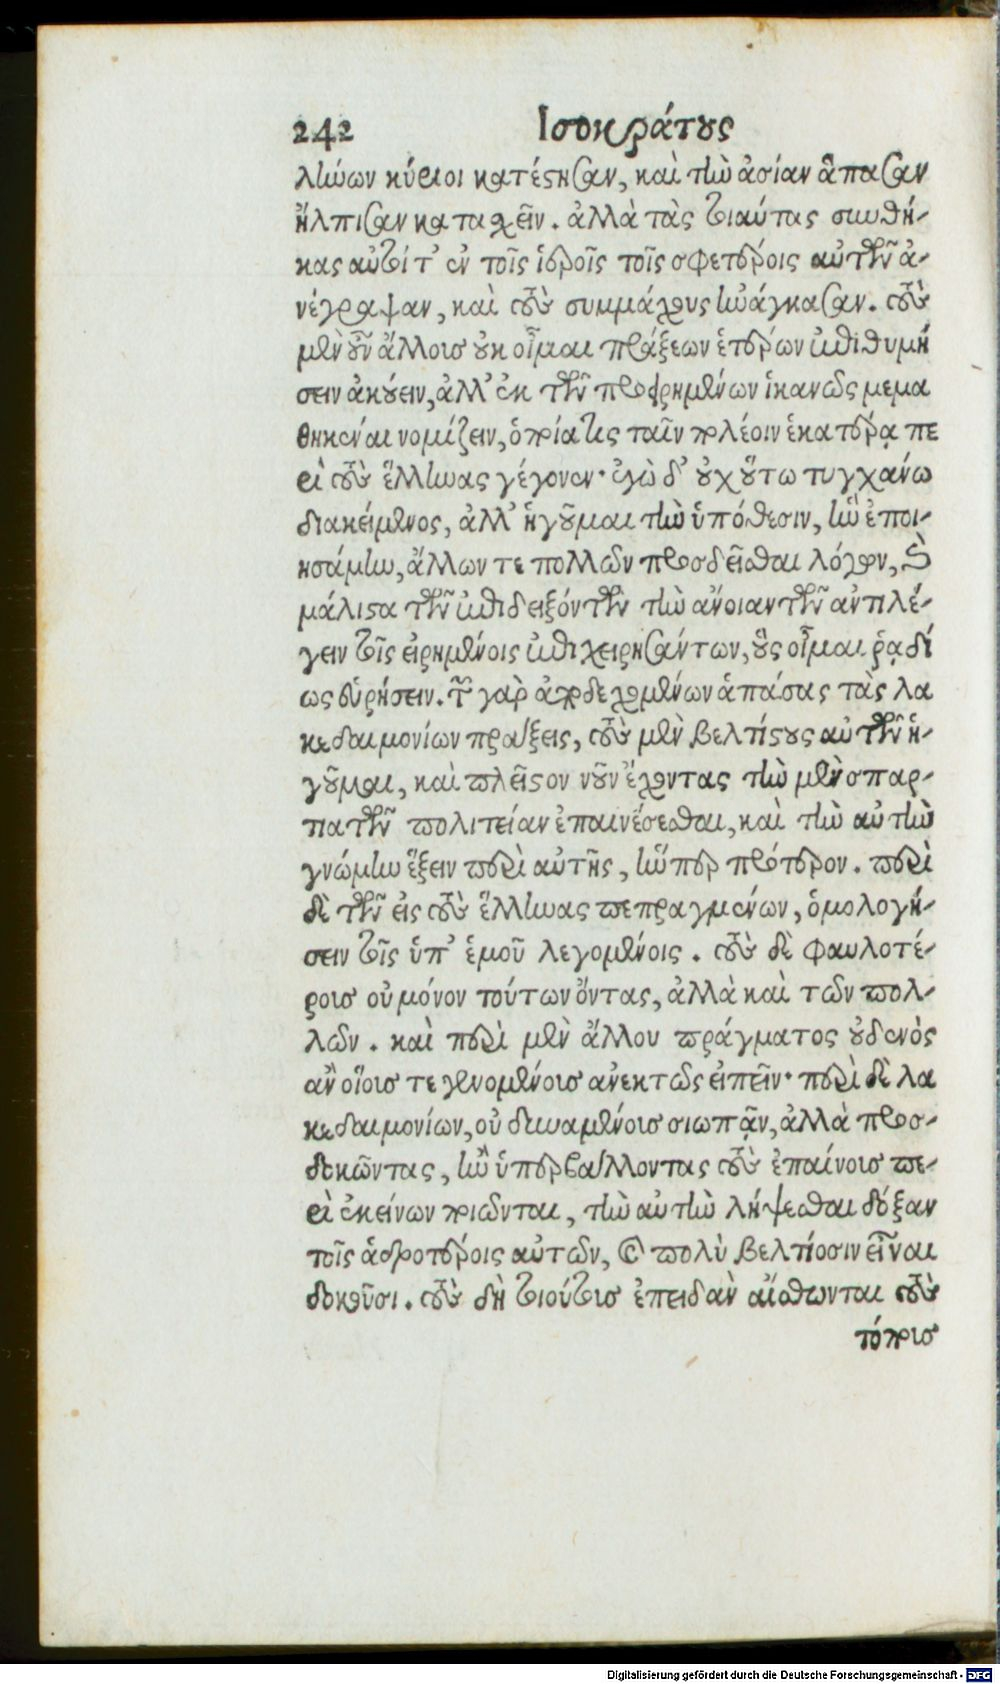 242 Ἰσοκράτους
λήνων κύριοι κατέστησαν, καὶ τὴν ἀσίαν ἅπασαν
ἤλπισαν κατασχεῖν. ἀλλὰ τὰς τοιαύτας συνθή-
κας αὐτοί τ' ἐν τοῖς ἱεροῖς τοῖς σφετέροις αὐτῶν ἀ-
νέγραψαν, καὶ τοὺς συμμάχους ἠνάγκασαν. τοὺς
μὲν οὖν ἄλλους οὐκ οἶμαι πράξεων ἑτέρων ἐπιθυμή
σειν ἀκούειν, ἀλλ' ἐκ τῶν προειρημένων ἱκανῶς μεμα
θηκέναι νομίζειν, ὁποία τις ταῖν πόλεοιν ἑκατέρα πε
ρὶ τοὺς ἕλληνας γέγονεν· ἐγὼ δ' οὐχ οὕτω τυγχάνω
διακείμενος, ἀλλ' ἡγοῦμαι τὴν ὑπόθεσιν, ἣν ἐποι-
ησάμην, ἄλλων τε πολλῶν προσδεῖσθαι λόγων, καὶ
μάλιστα τῶν ἐπιδειξόντων τὴν ἄνοιαν τῶν ἀντιλέ-
γειν τοῖς εἰρημένοις ἐπιχειρησάντων, οὓς οἶμαι ῥᾳδί
ως εὑρήσειν. τῶν γὰρ ἀποδεχομένων ἁπάσας τὰς λα
κεδαιμονίων πράξεις, τοὺς μὲν βελτίστους αὐτῶν ἡ-
γοῦμαι, καὶ πλεῖστον νοῦν ἔχοντας τὴν μὲν σπαρ-
τιατῶν πολιτείαν ἐπαινέσεσθαι, καὶ τὴν αὐτὴν
γνώμην ἕξειν περὶ αὐτῆς, ἥνπερ πρότερον. περὶ
δὲ τῶν εἰς τοὺς ἕλληνας πεπραγμένων, ὁμολογή-
σειν τοῖς ὑπ' ἐμοῦ λεγομένοις. τοὺς δὲ φαυλοτέ-
ρους οὐ μόνον τούτων ὄντας, ἀλλὰ καὶ τῶν πολ-
λῶν. καὶ περὶ μὲν ἄλλου πράγματος οὐδενὸς
ἂν οἵους τε γενομένους ἀνεκτῶς εἰπεῖν· περὶ δὲ λα
κεδαιμονίων, οὐ δυναμένους σιωπᾷν, ἀλλὰ προσ-
δοκῶντας, ἢν ὑπερβάλλοντας τοὺς ἐπαίνους πε-
ρὶ ἐκείνων ποιῶνται, τὴν αὐτὴν λήψεσθαι δόξαν
τοῖς ἁδροτέροις αὐτῶν, καὶ πολὺ βελτίοσιν εἶναι
δοκοῦσι. τοὺς δὴ τοιούτους ἐπειδὰν αἴσθωνται τοὺς
τόπους
Digitalisierung gefördert durch die Deutsche Forschungsgemeinschaft - DFG